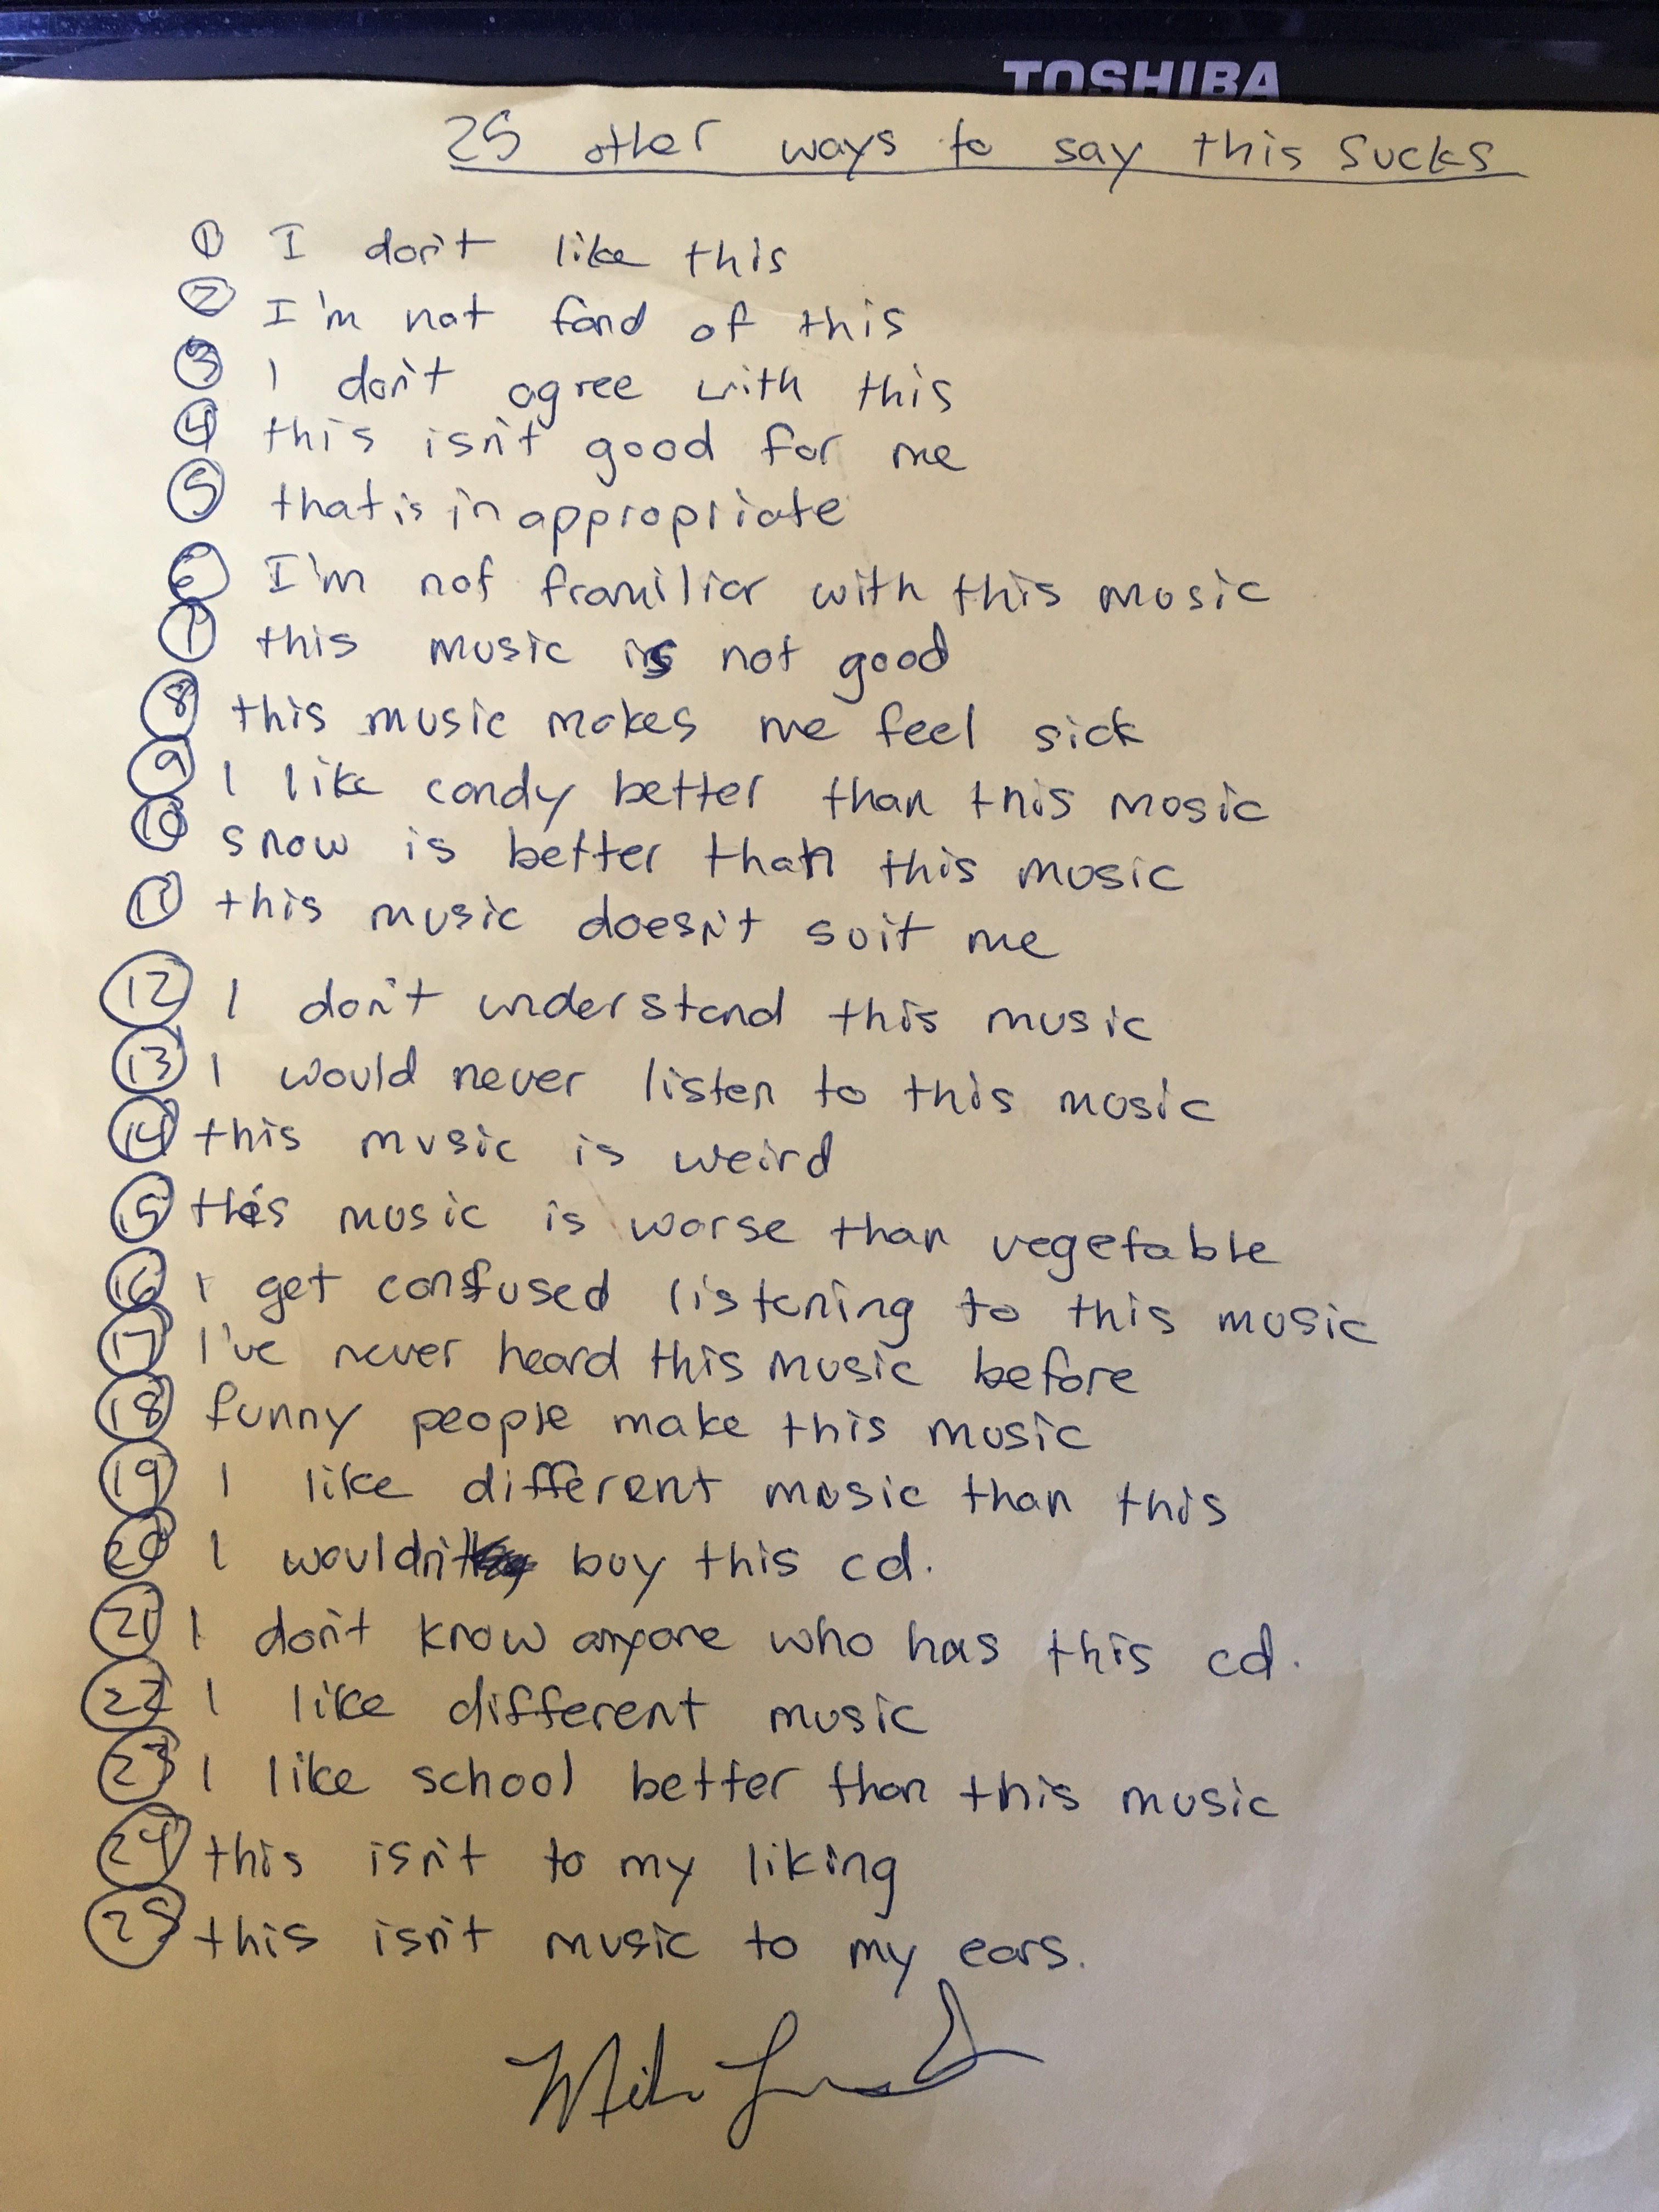 TOSHIBA
25 other ways to say this sucks
① I don't like this
② I'm not fond of this
③ I don't agree with this
④ this isn't good for me
⑤ that is inappropriate
⑥ I'm not framiliar with this music
⑦ this music is not good
⑧ this music makes me feel sick
⑨ I like candy better than this mosic
⑩ snow is better than this music
⑪ this music doesn't suit me
⑫ I don't understand this music
⑬ I would never listen to this mosic
⑭ this music is weird
⑮ this music is worse than vegetable
⑯ I get confused listening to this music
⑰ I've never heard this music before
⑱ funny people make this music
⑲ I like different music than this
⑳ I wouldn't buy this cd.
㉑ I don't know anyone who has this cd.
㉒ I like different music
㉓ I like school better than this music
㉔ this isn't to my liking
㉕ this isn't music to my ears.